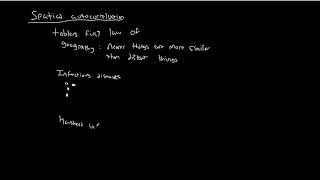 Spatial autocorrelation
toblers first law of
geography : nearer things are more similar
than distant things
Infectious diseases